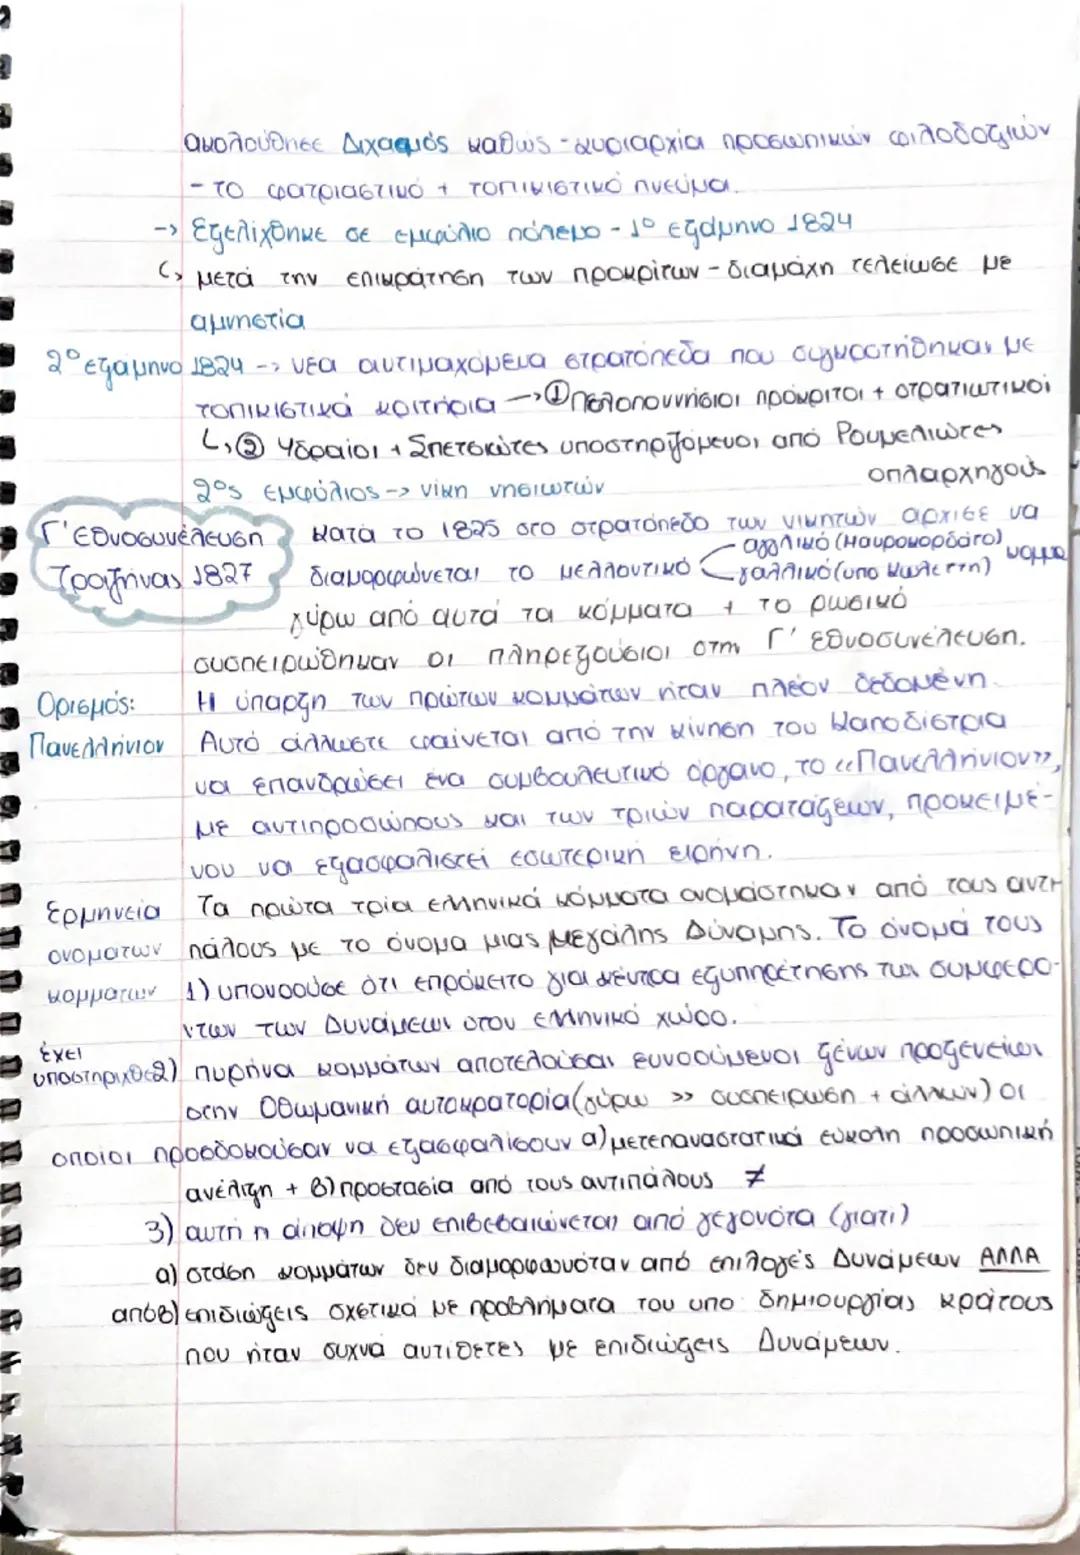 ακολούθησε Διχασμός καθώς - κυριαρχία προσωπικών φιλοδοξιών
- το φατριαστικό + τοπικιστικό πνεύμα.
-> Εξελίχθηκε σε εμφύλιο πόλεμο - 1º εξάμηνο 1824
↳ μετά την επικράτηση των προκρίτων - διαμάχη τελείωσε με
αμνηστία
2º εξάμηνο 1824 -> νέα αντιμαχόμενα στρατόπεδα που συγκροτήθηκαν με
τοπικιστικά κριτήρια -> ① Πελοποννήσιοι πρόκριτοι + στρατιωτικοί
↳ ② Υδραίοι + Σπετσιώτες υποστηριζόμενοι από Ρουμελιώτες
οπλαρχηγούς
2ος εμφύλιος -> νίκη νησιωτών
Γ' Εθνοσυνέλευση
Τροιζήνας 1827
κατά το 1825 στο στρατόπεδο των νικητών άρχισε να
διαμορφώνεται το μελλοντικό < - αγγλικό (Μαυροκορδάτο) κόμμα
- γαλλικό (υπό Κωλέττη)
γύρω από αυτά τα κόμματα + το ρωσικό
συσπειρώθηκαν οι πληρεξούσιοι στη Γ' Εθνοσυνέλευση.
Ορισμός: Η ύπαρξη των πρώτων κομμάτων ήταν πλέον δεδομένη.
Πανελλήνιον Αυτό άλλωστε φαίνεται από την κίνηση του Καποδίστρια
να επανδρώσει ένα συμβουλευτικό όργανο, το «Πανελλήνιον»,
με αντιπροσώπους και των τριών παρατάξεων, προκειμέ-
νου να εξασφαλιστεί εσωτερική ειρήνη.
Ερμηνεία Τα πρώτα τρία ελληνικά κόμματα ονομάστηκαν από τους αντι
ονομάτων πάλους με το όνομα μιας Μεγάλης Δύναμης. Το όνομά τους
κομμάτων 1) υπονοούσε ότι επρόκειτο για κέντρα εξυπηρέτησης των συμφερό-
ντων των Δυνάμεων στον ελληνικό χώρο.
έχει
υποστηριχθεί 2) πυρήνα κομμάτων αποτελούσαν ευνοούμενοι ξένων προξενείων
στην Οθωμανική αυτοκρατορία (γύρω >> συσπείρωση + άλλων) οι
οποίοι προσδοκούσαν να εξασφαλίσουν α) μετεπαναστατικά εύκολη προσωπική
ανέλιξη + β) προστασία από τους αντιπάλους ≠
3) αυτή η άποψη δεν επιβεβαιώνεται από γεγονότα (γιατί)
α) στάση κομμάτων δεν διαμορφωνόταν από επιλογές Δυνάμεων ΑΛΛΑ
από β) επιδιώξεις σχετικά με προβλήματα του υπό δημιουργίας κράτους
που ήταν συχνά αντίθετες με επιδιώξεις Δυνάμεων.